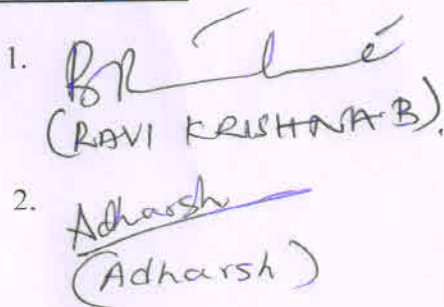 1.
(RAVI KRISHNA B).
2. Adharsh
(Adharsh)